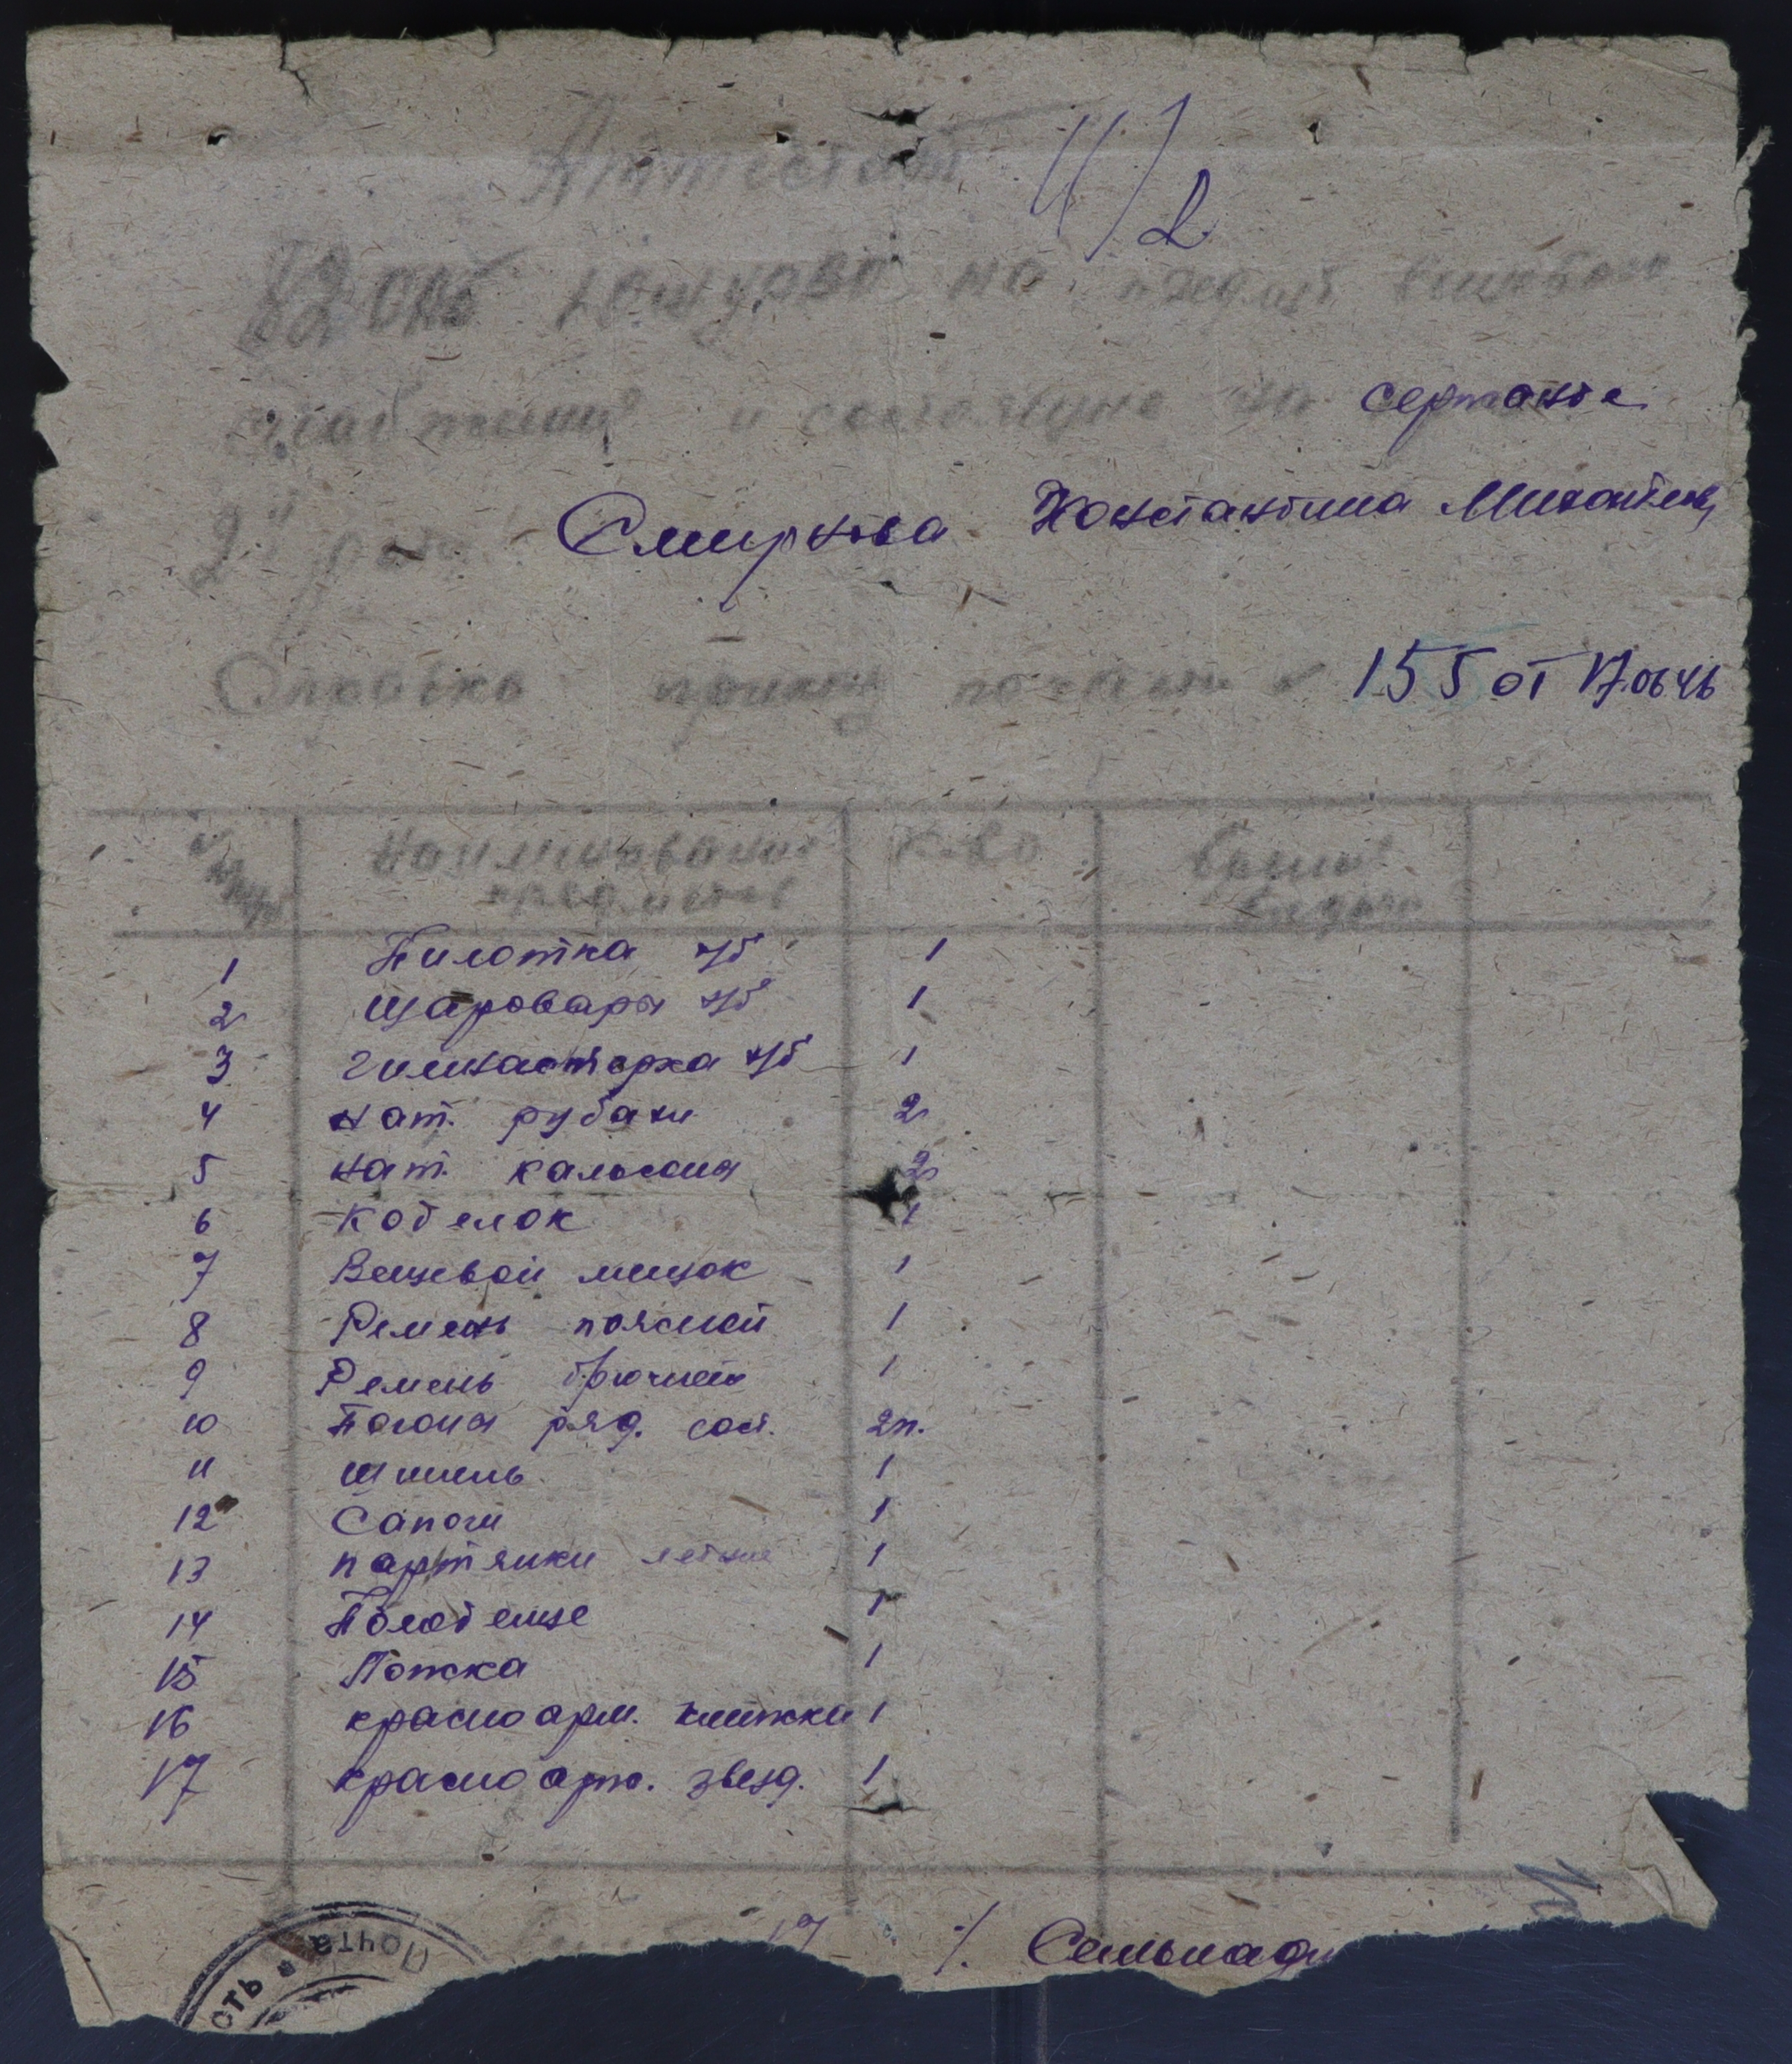 Аттестат 4/2
на предмет вещевого
и состоящие на сержанта
2й роты Смирнова Константина Михайлов
приказ по части № 155 от 17.06.46
Наименование предметов К-во Время выдачи
1 Пилотка х/б 1
2 Шаровары х/б 1
3 гимнастерка х/б 1
4 нат. рубахи 2
5 нат. кальсоны 2
6 Котелок 1
7 Вещевой мешок 1
8 Ремень поясной 1
9 Ремень брючной 1
10 Погоны ряд. сост. 2п.
11 Шинель 1
12 Сапоги 1
13 партянки летние 1
14 Полотенце 1
15 Ложка 1
16 красноарм. книжка 1
17 красноарм. звезд. 1
17
Почта
сть